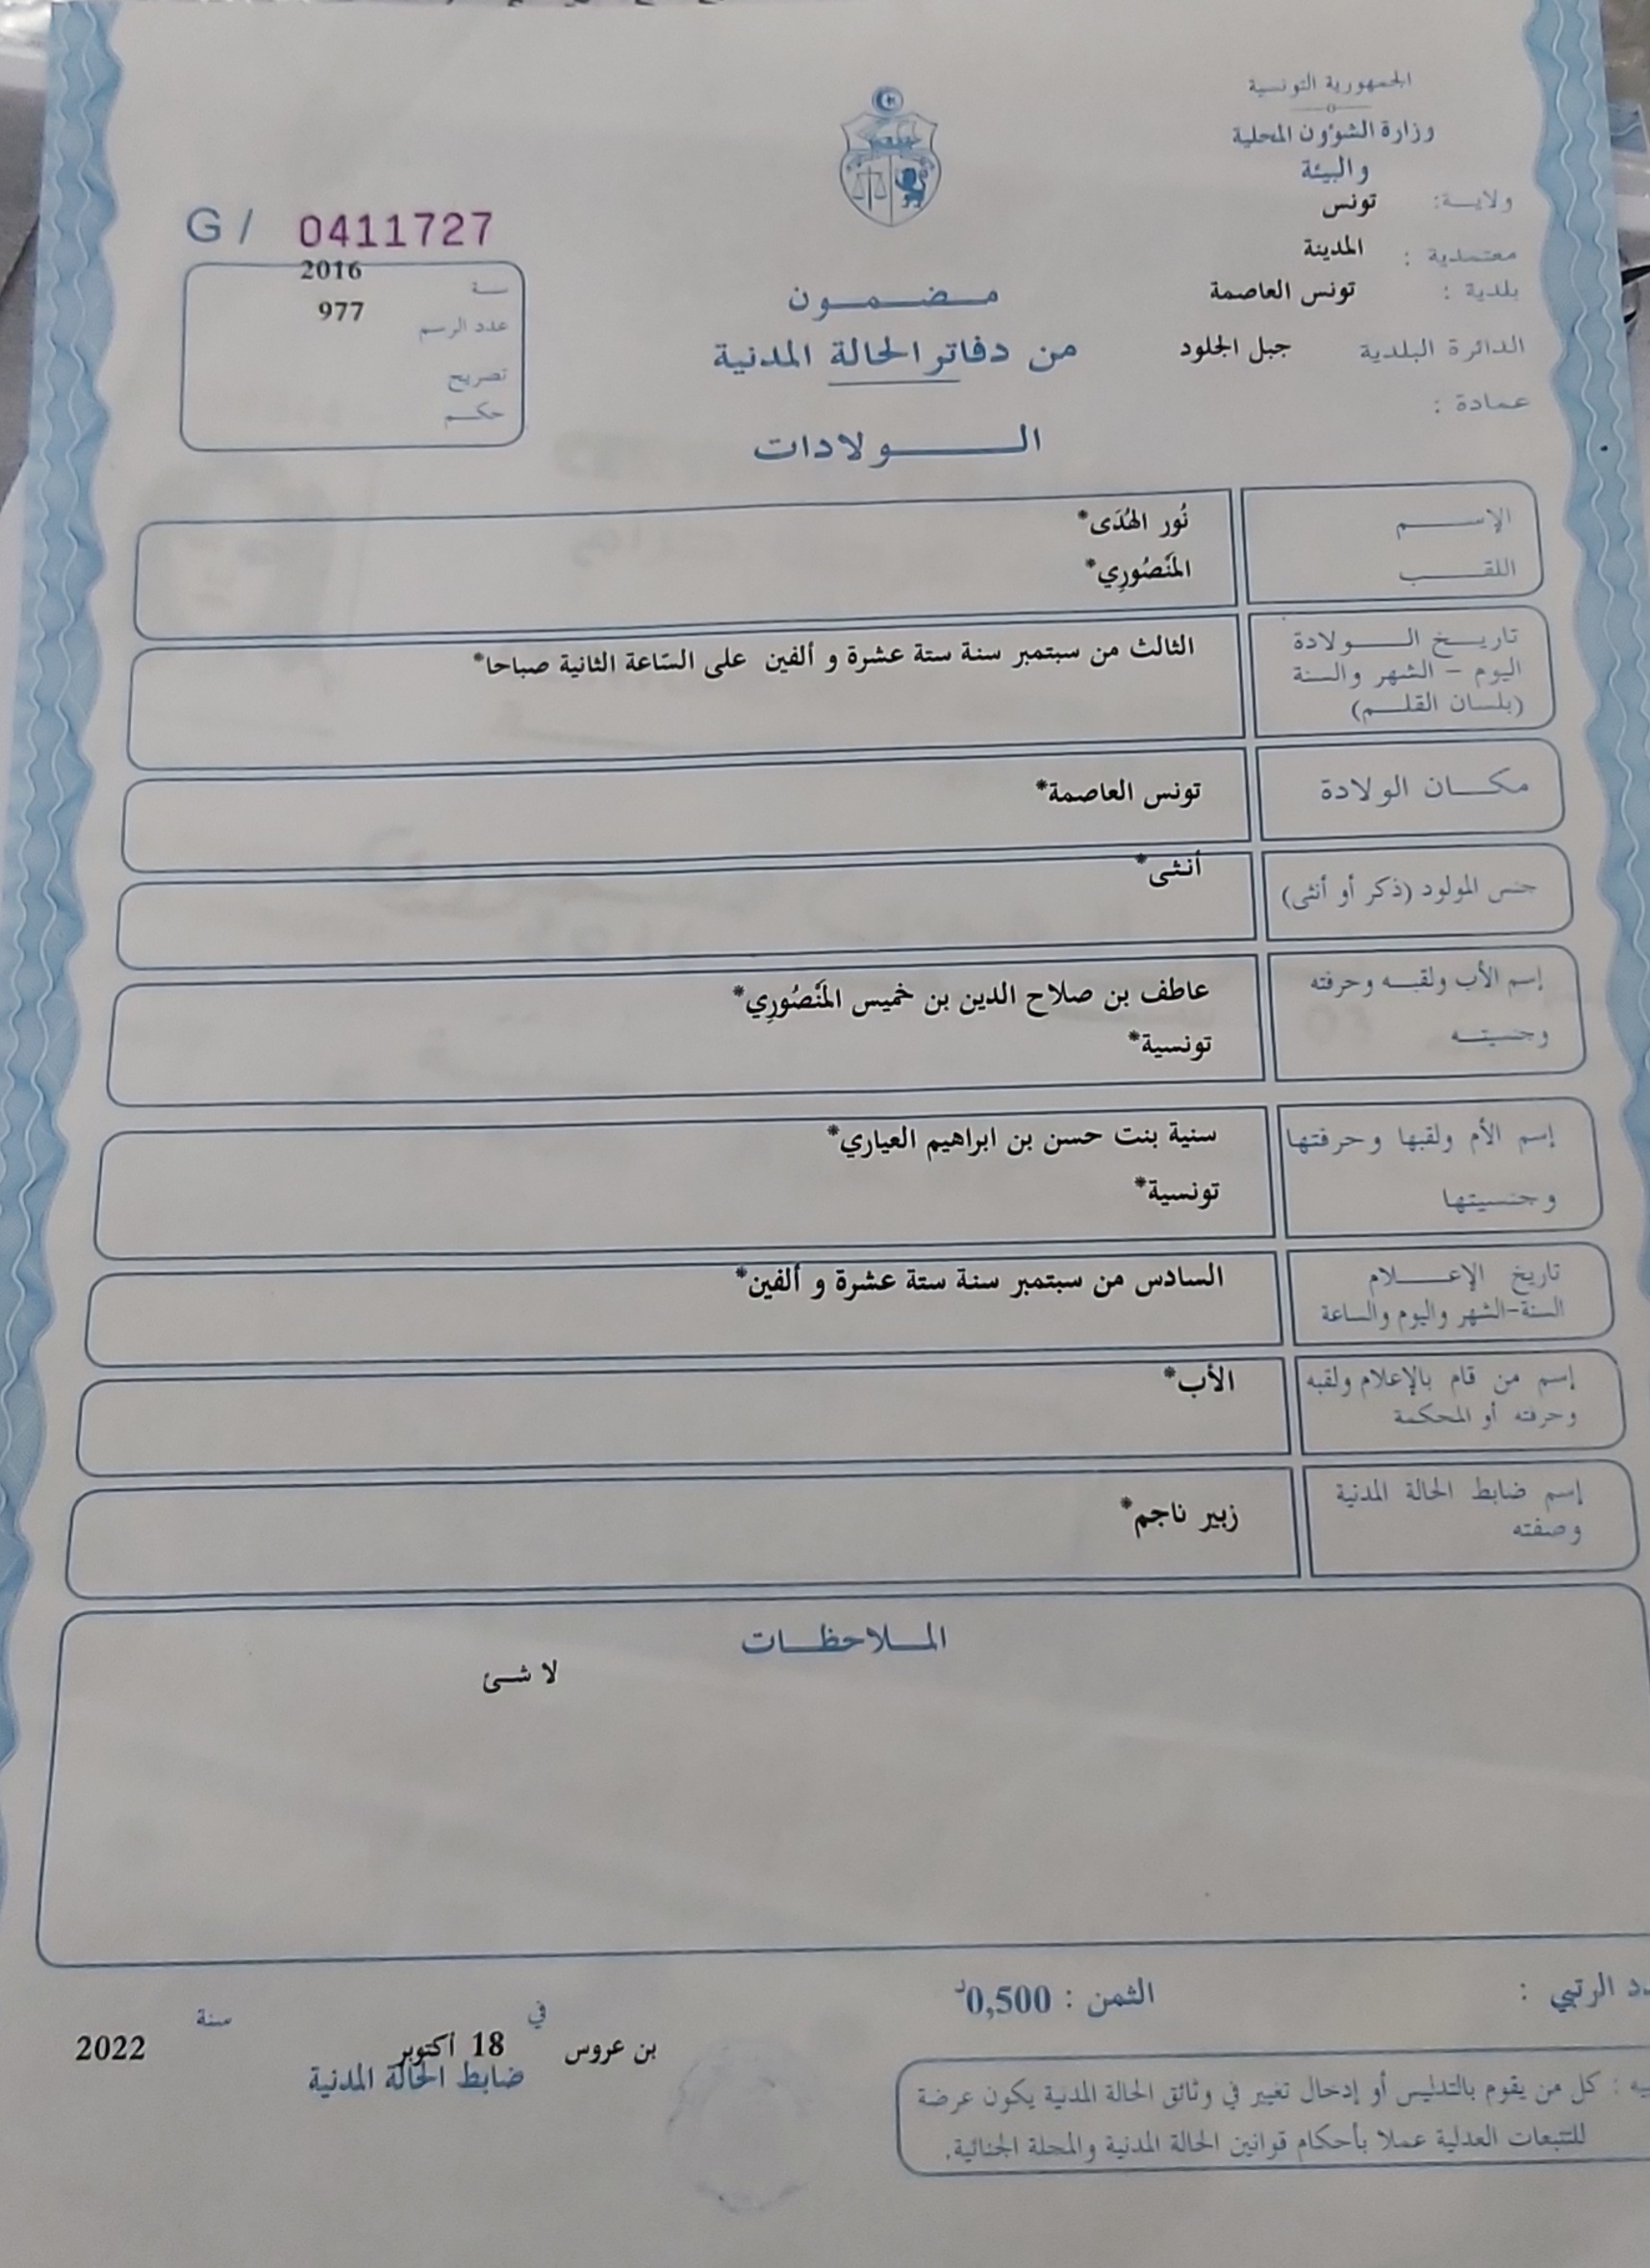 الجمهورية التونسية
وزارة الشؤون المحلية
والبيئة
ولايـــة: تونس
معتمدية : المدينة
بلدية : تونس العاصمة
الدائرة البلدية جبل الجلود
عمادة :
G / 0411727
سنة 2016
عدد الرسم 977
تصريح
حكم
مضمون
من دفاتر الحالة المدنية
الولادات
الإسم نُور الهُدَى*
اللقب المَنْصُورِي*
تاريخ الولادة
اليوم - الشهر والسنة
(بلسان القلم)
الثالث من سبتمبر سنة ستة عشرة و ألفين على السّاعة الثانية صباحا*
مكان الولادة تونس العاصمة*
جنس المولود (ذكر أو أنثى) أنثى*
إسم الأب ولقبه وحرفته
وجنسيته
عاطف بن صلاح الدين بن خميس المَنْصُورِي*
تونسية*
إسم الأم ولقبها وحرفتها
وجنسيتها
سنية بنت حسن بن ابراهيم العياري*
تونسية*
تاريخ الإعلام
السنة-الشهر واليوم والساعة
السادس من سبتمبر سنة ستة عشرة و ألفين*
إسم من قام بالإعلام ولقبه
وحرفته أو المحكمة
الأب*
إسم ضابط الحالة المدنية
وصفته
زبير ناجم*
الملاحظات
لا شئ
الرتبي :
الثمن : 0,500د
بن عروس في 18 أكتوبر سنة 2022
ضابط الحالة المدنية
: كل من يقوم بالتدليس أو إدخال تغيير في وثائق الحالة المدنية يكون عرضة
للتتبعات العدلية عملا بأحكام قوانين الحالة المدنية والمجلة الجنائية.